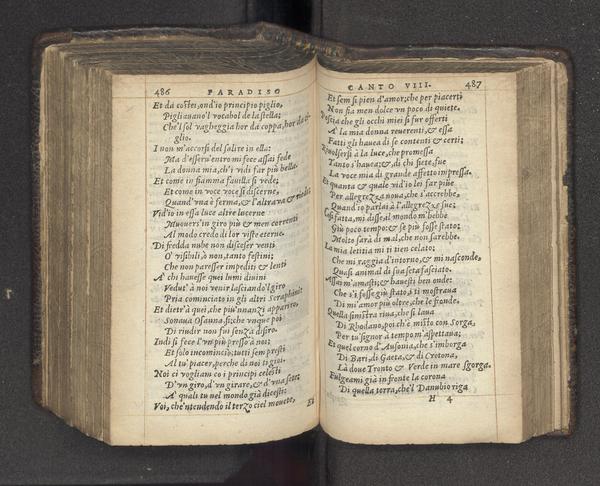 486 PARADISO
Et da costei, ond'io principio piglio,
Pigliauano'l vocabol de la stella;
Che'l sol vagheggia hor da coppa, hor da ci-
glio.
I non m'accorsi del salire in ella:
Ma d'esseru'entro mi fece assai fede
La donna mia, ch'i vidi far più bella.
Et come in fiamma fauilla si vede;
Et come in voce voce si discerne,
Quand'vna è ferma, & l'altra va & riede;
Vid'io in essa luce altre lucerne
Muouersi'n giro più & men correnti
Al modo credo di lor viste eterne.
Di fredda nube non disceser venti
O' visibili, ò non, tanto festini;
Che non paresser impediti & lenti
A' chi hauesse quei lumi diuini
Vedut' à noi venir lasciando'l giro
Pria cominciato in gli altri Seraphini:
Et dietr'à quei, che più'nnanzi appariro,
Sonaua Osanna si; che vnque poi
Di riudir non fui senza disiro.
Indi si fece l'vn più presso à noi;
Et solo incominciò; tutti sem presti
Al tu' piacer, perche di noi ti gioi.
Noi ci vogliam co i principi celesti
D'vn giro, d'vn girare, & d'vna sete;
A' quali tu nel mondo già dicesti;
Voi, che'ntendendo il terzo ciel mouete,
Et
CANTO VIII. 487
Et sem si pien d'amor; che per piacerti
Non fia men dolce vn poco di quiete.
Poscia che gli occhi miei si fur offerti
A' la mia donna reuerenti, & essa
Fatti gli hauea di se contenti & certi;
Riuolsersi à la luce, che promessa
Tanto s'hauea; &, di chi siete, fue
La voce mia di grande affetto impressa.
Et quanta & quale vid'io lei far piùe
Per allegrezza noua, che s'accrebbe,
Quand'io parlai à l'allegrezze sue;
Cosi fatta, mi disse, al mondo m'hebbe
Giù poco tempo: & se più fosse stato;
Molto sarà di mal, che non sarebbe.
La mia letitia mi ti tien celato;
Che mi raggia d'intorno, & mi nasconde,
Quasi animal di sua seta fasciato.
Assai m'amasti; & hauesti ben onde:
Che s'i fosse giù stato, i ti mostraua
Di mi'amor più oltre, che le fronde.
Quella sinistra riua, che si laua
Di Rhodano, poi ch'è misto con Sorga,
Per tu' signor à tempo m'aspettaua;
Et quel corno d'Ausonia, che s'imborga
Di Bari, di Gaeta, & di Crotona,
Là doue Tronto & Verde in mare sgorga.
Fulgeami già in fronte la corona
Di quella terra, che'l Danubio riga
H 4